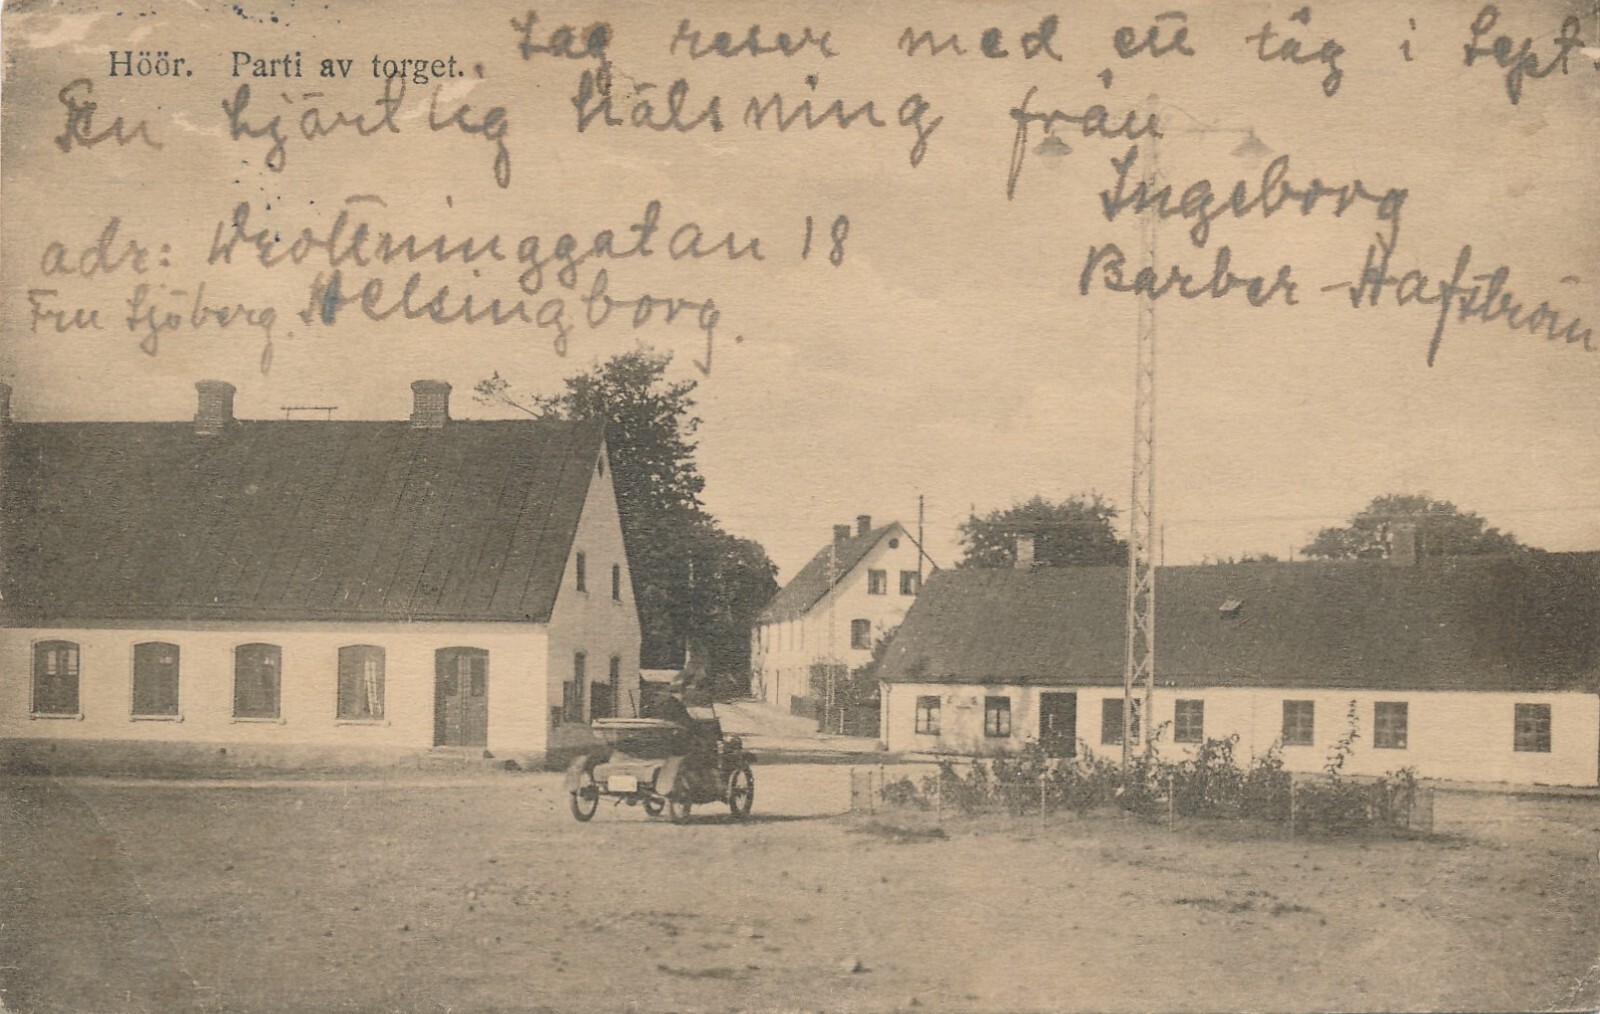 Höör. Parti av torget.
Jag reser med ett tåg i Sept.
En hjärtlig hälsning från
Ingeborg
Barber-Hafström
adr: Drottninggatan 18
Fru Sjöberg. Helsingborg.